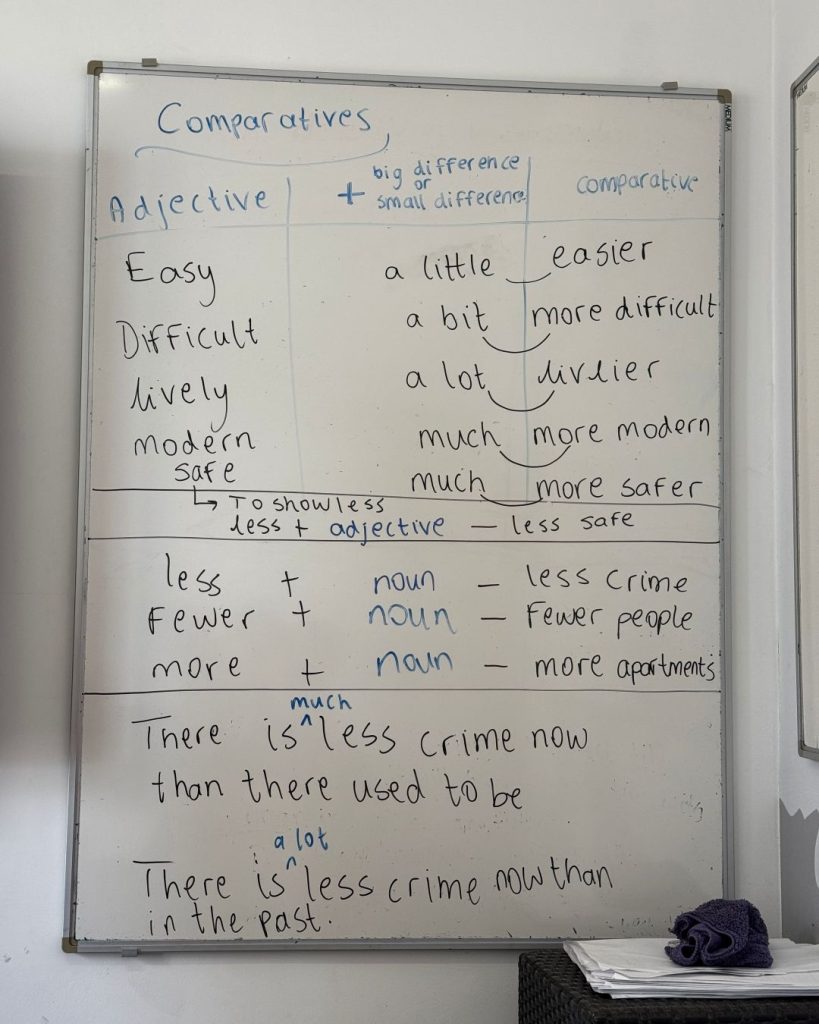 Comparatives
Adjective + big difference or small difference comparative
Easy a little easier
Difficult a bit more difficult
lively a lot livlier
modern much more modern
safe much more safer
To show less
less + adjective — less safe
less + noun — less crime
Fewer + noun — Fewer people
more + noun — more apartments
much
There is ^ less crime now
than there used to be
a lot
There is ^ less crime now than
in the past.
MEDIUM